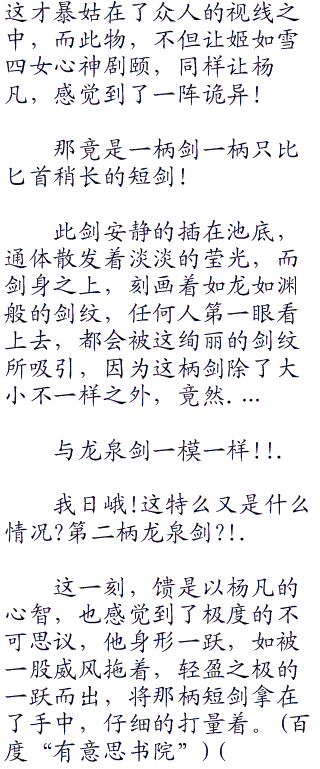 这才暴姑在了众人的视线之
中，而此物，不但让姬如雪
四女心神剧颐，同样让杨
凡，感觉到了一阵诡异！
那竟是一柄剑一柄只比
匕首稍长的短剑！
此剑安静的插在池底，
通体散发着淡淡的莹光，而
剑身之上，刻画着如龙如渊
般的剑纹，任何人第一眼看
上去，都会被这绚丽的剑纹
所吸引，因为这柄剑除了大
小不一样之外，竟然....
与龙泉剑一模一样！！.
我日峨！这特么又是什么
情况？第二柄龙泉剑？！.
这一刻，馈是以杨凡的
心智，也感觉到了极度的不
可思议，他身形一跃，如被
一股威风拖着，轻盈之极的
一跃而出，将那柄短剑拿在
了手中，仔细的打量着。（百
度“有意思书院”）（